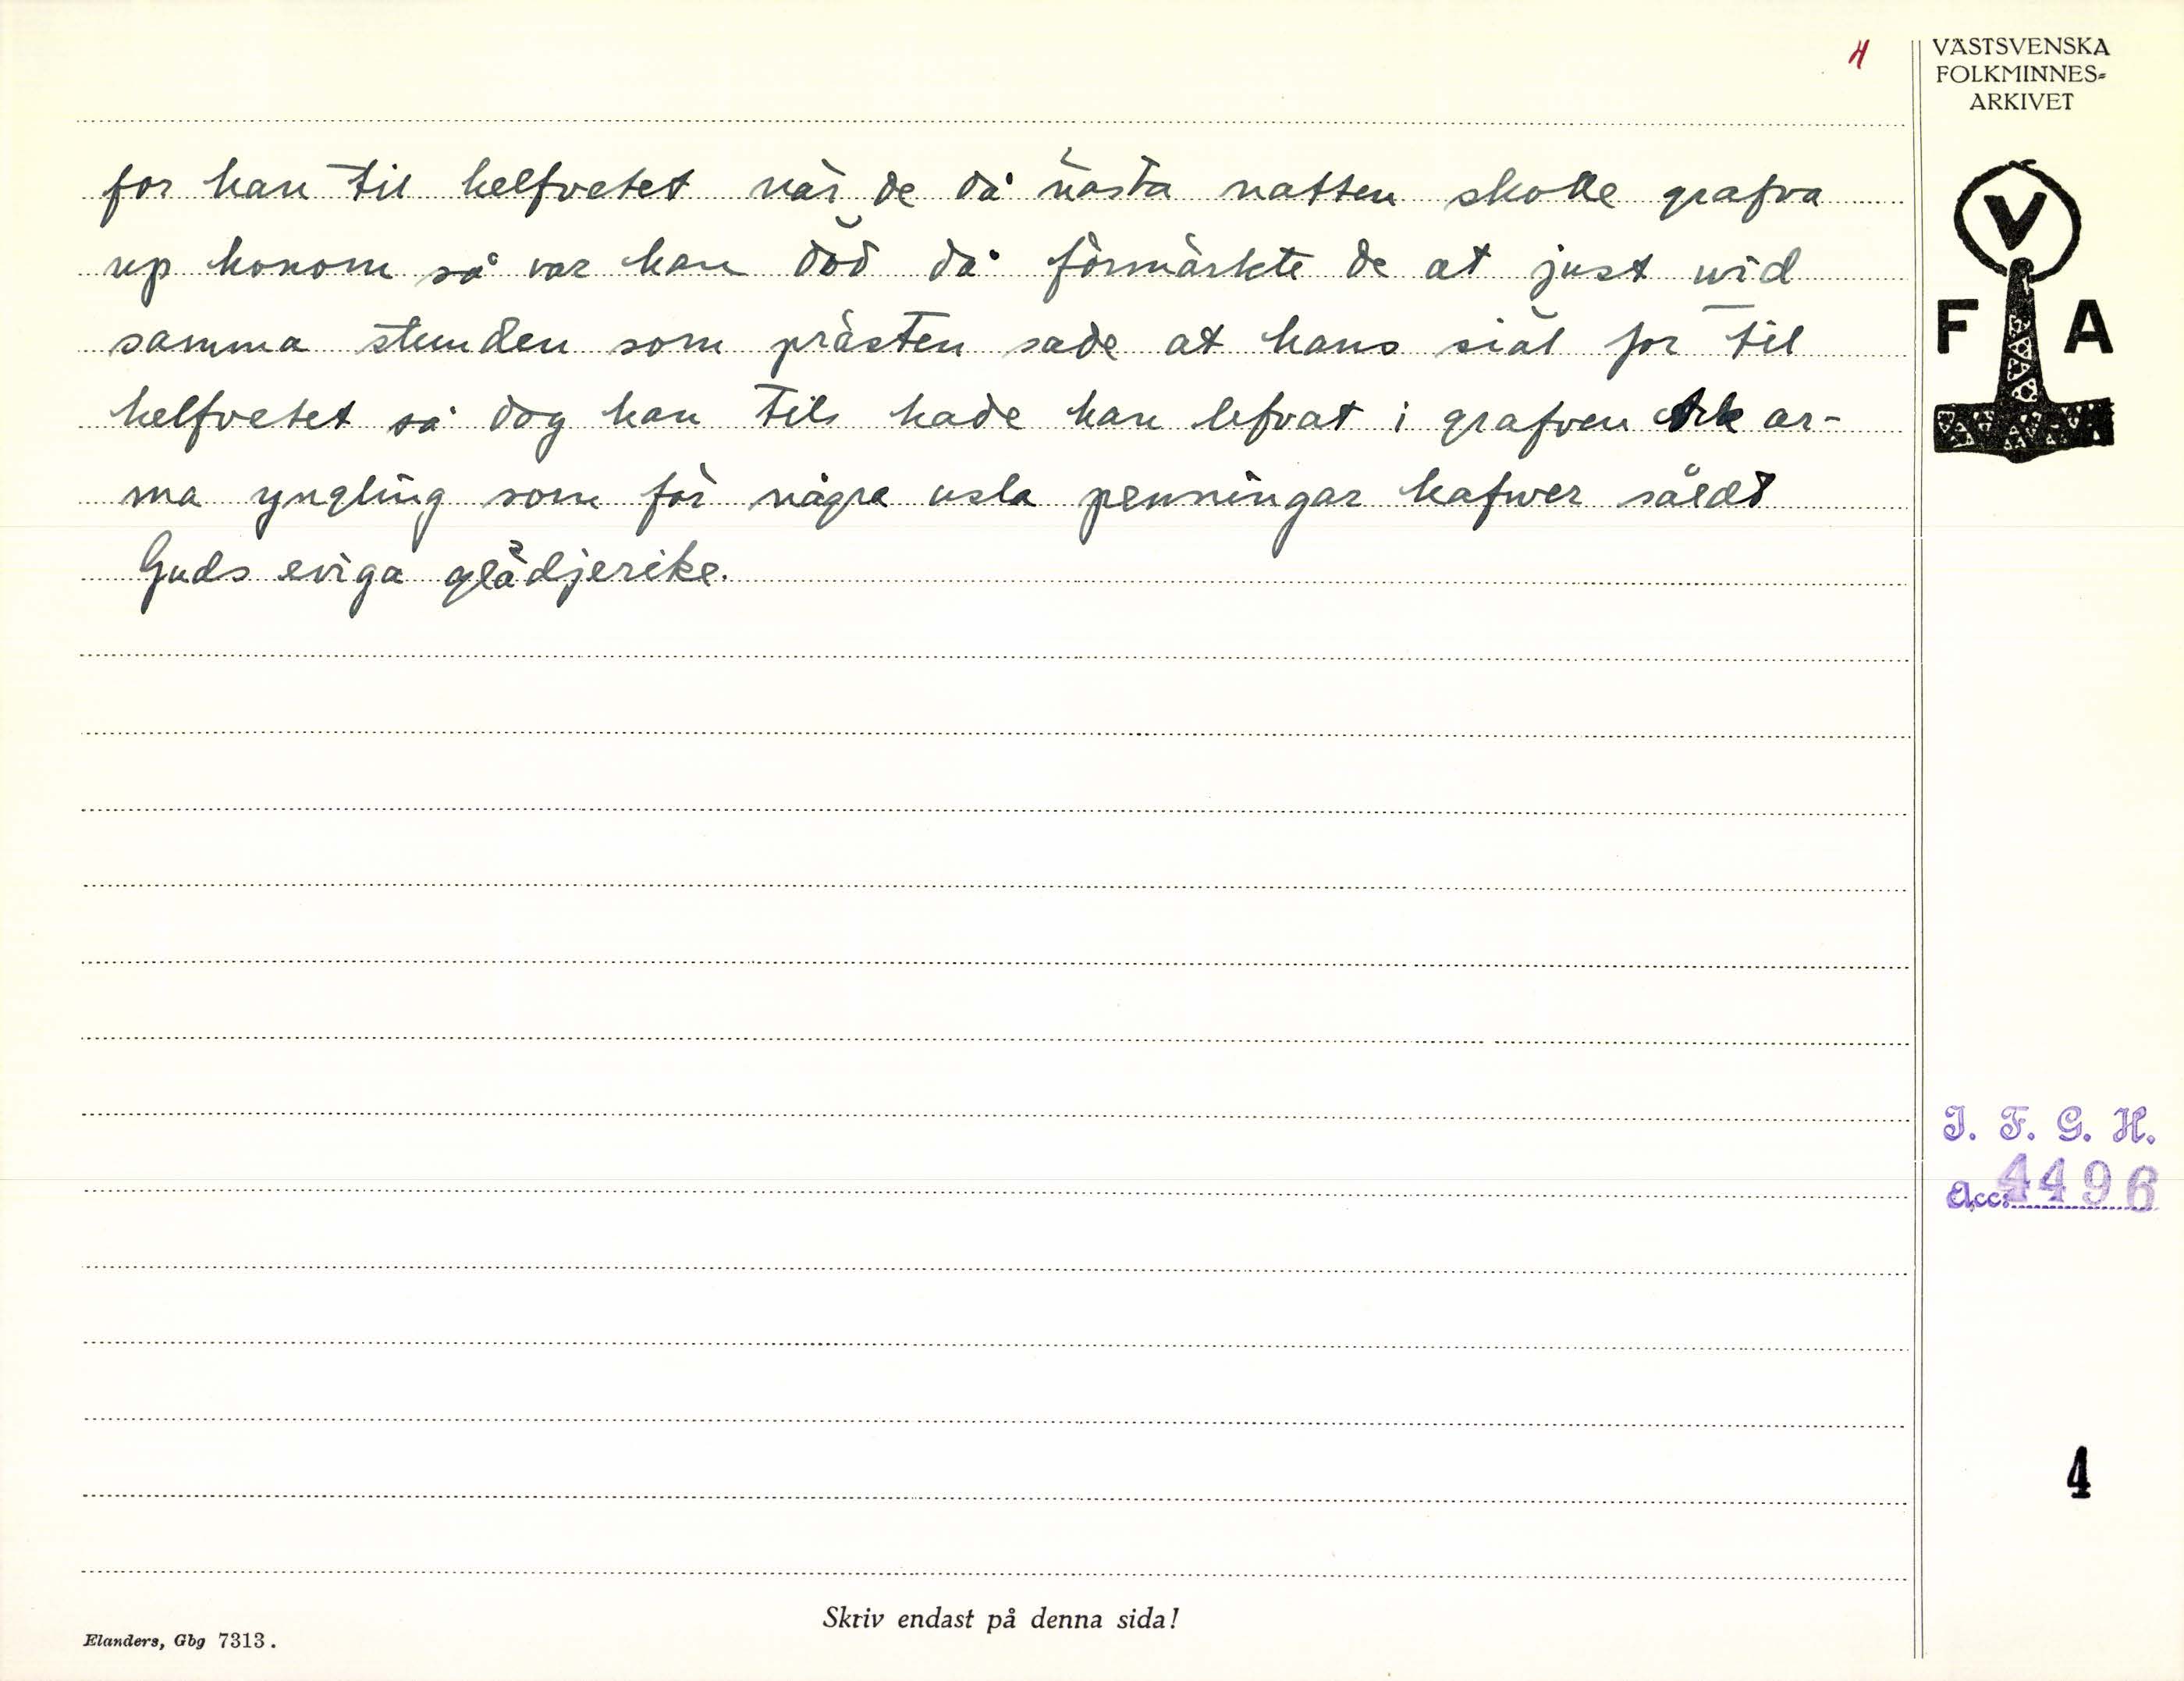 4
VÄSTSVENSKA
FOLKMINNES=
ARKIVET
for han til helfvetet när de då nästa natten skolle grafva
up honom så var han död då förmärkte de at just wid
samma stunden som prästen sade at hans siäl for til
helfvetet så dog han tils hade han lefvat i grafven Ack ar-
ma yngling som för några usla penningar hafwer såldt
Guds eviga glädjerike.
V
F A
I. F. G. H.
Acc: 4496
4
Skriv endast på denna sida!
Elanders, Gbg 7313.